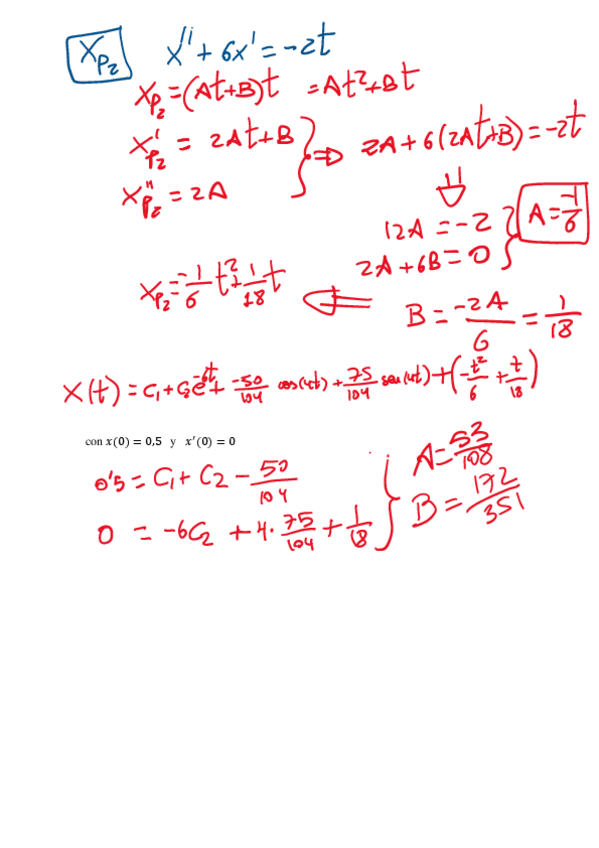 X_{P_2} x'' + 6x' = -2t
X_{P_2} = (At+B)t = At² + Bt
X'_{P_2} = 2At + B } ⇒ 2A + 6(2At+B) = -2t
X''_{P_2} = 2A
⇓
12A = -2 } A = -1/6
2A + 6B = 0
X_{P_2} = -1/6 t² + 1/18 t ⇐ B = -2A/6 = 1/18
X(t) = C₁ + C₂e^{-6t} + -50/104 cos(4t) + 75/104 sen(4t) + (-t²/6 + t/18)
con x(0) = 0,5 y x′(0) = 0
0'5 = C₁ + C₂ - 50/104 } A = 53/108
0 = -6C₂ + 4·75/104 + 1/18 } B = 172/351